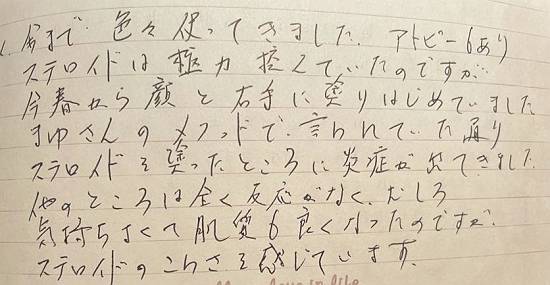 今まで 色々使ってきました。アトピーもあり
ステロイドは極力控えていたのですが
今春から顔と右手に塗りはじめていました
まゆさんのメソッドで言われていた通り
ステロイドを塗ったところに炎症が出てきました
他のところは全く反応がなく、むしろ
気持ちよくて肌質も良くなったのですが、
ステロイドのこわさを感じています。